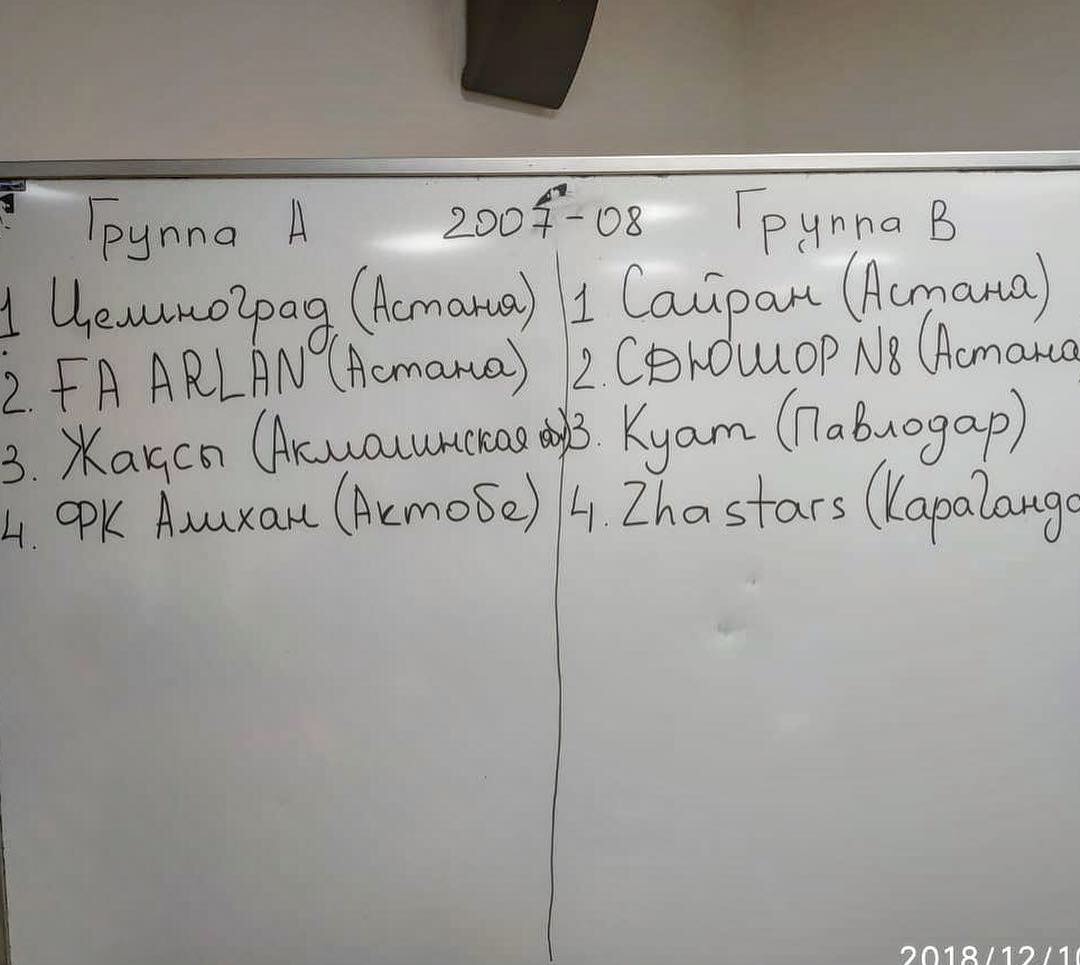 Группа А 2007-08 Группа В
1 Целиноград (Астана)
2. FA ARLAN (Астана)
3. Жақсы (Акмолинская обл)
4. ФК Алихан (Актобе)
1 Сайран (Астана)
2. СДЮШОР N8 (Астана
3. Куат (Павлодар)
4. Zhastars (Караганда
2018/12/10